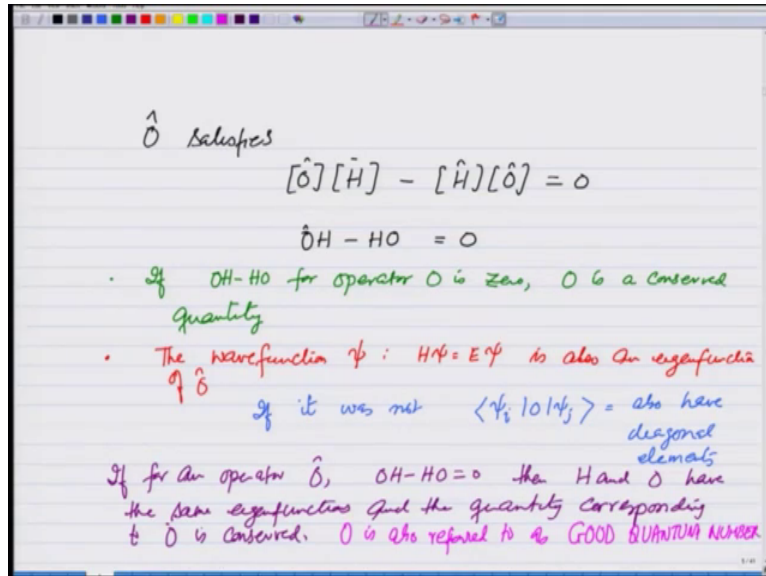 Ô satisfies
[Ô][H̄] - [Ĥ][Ô] = 0
ÔH - HO = 0
· If OH-HO for operator O is zero, O is a conserved
quantity
· The wavefunction ψ : Hψ = Eψ is also an eigenfunction
of Ô
If it was not <ψi |O|ψj> = also have
diagonal
elements
If for an operator Ô, OH-HO=0 then H and O have
the same eigenfunctions and the quantity corresponding
to O is conserved. O is also referred to as GOOD QUANTUM NUMBER